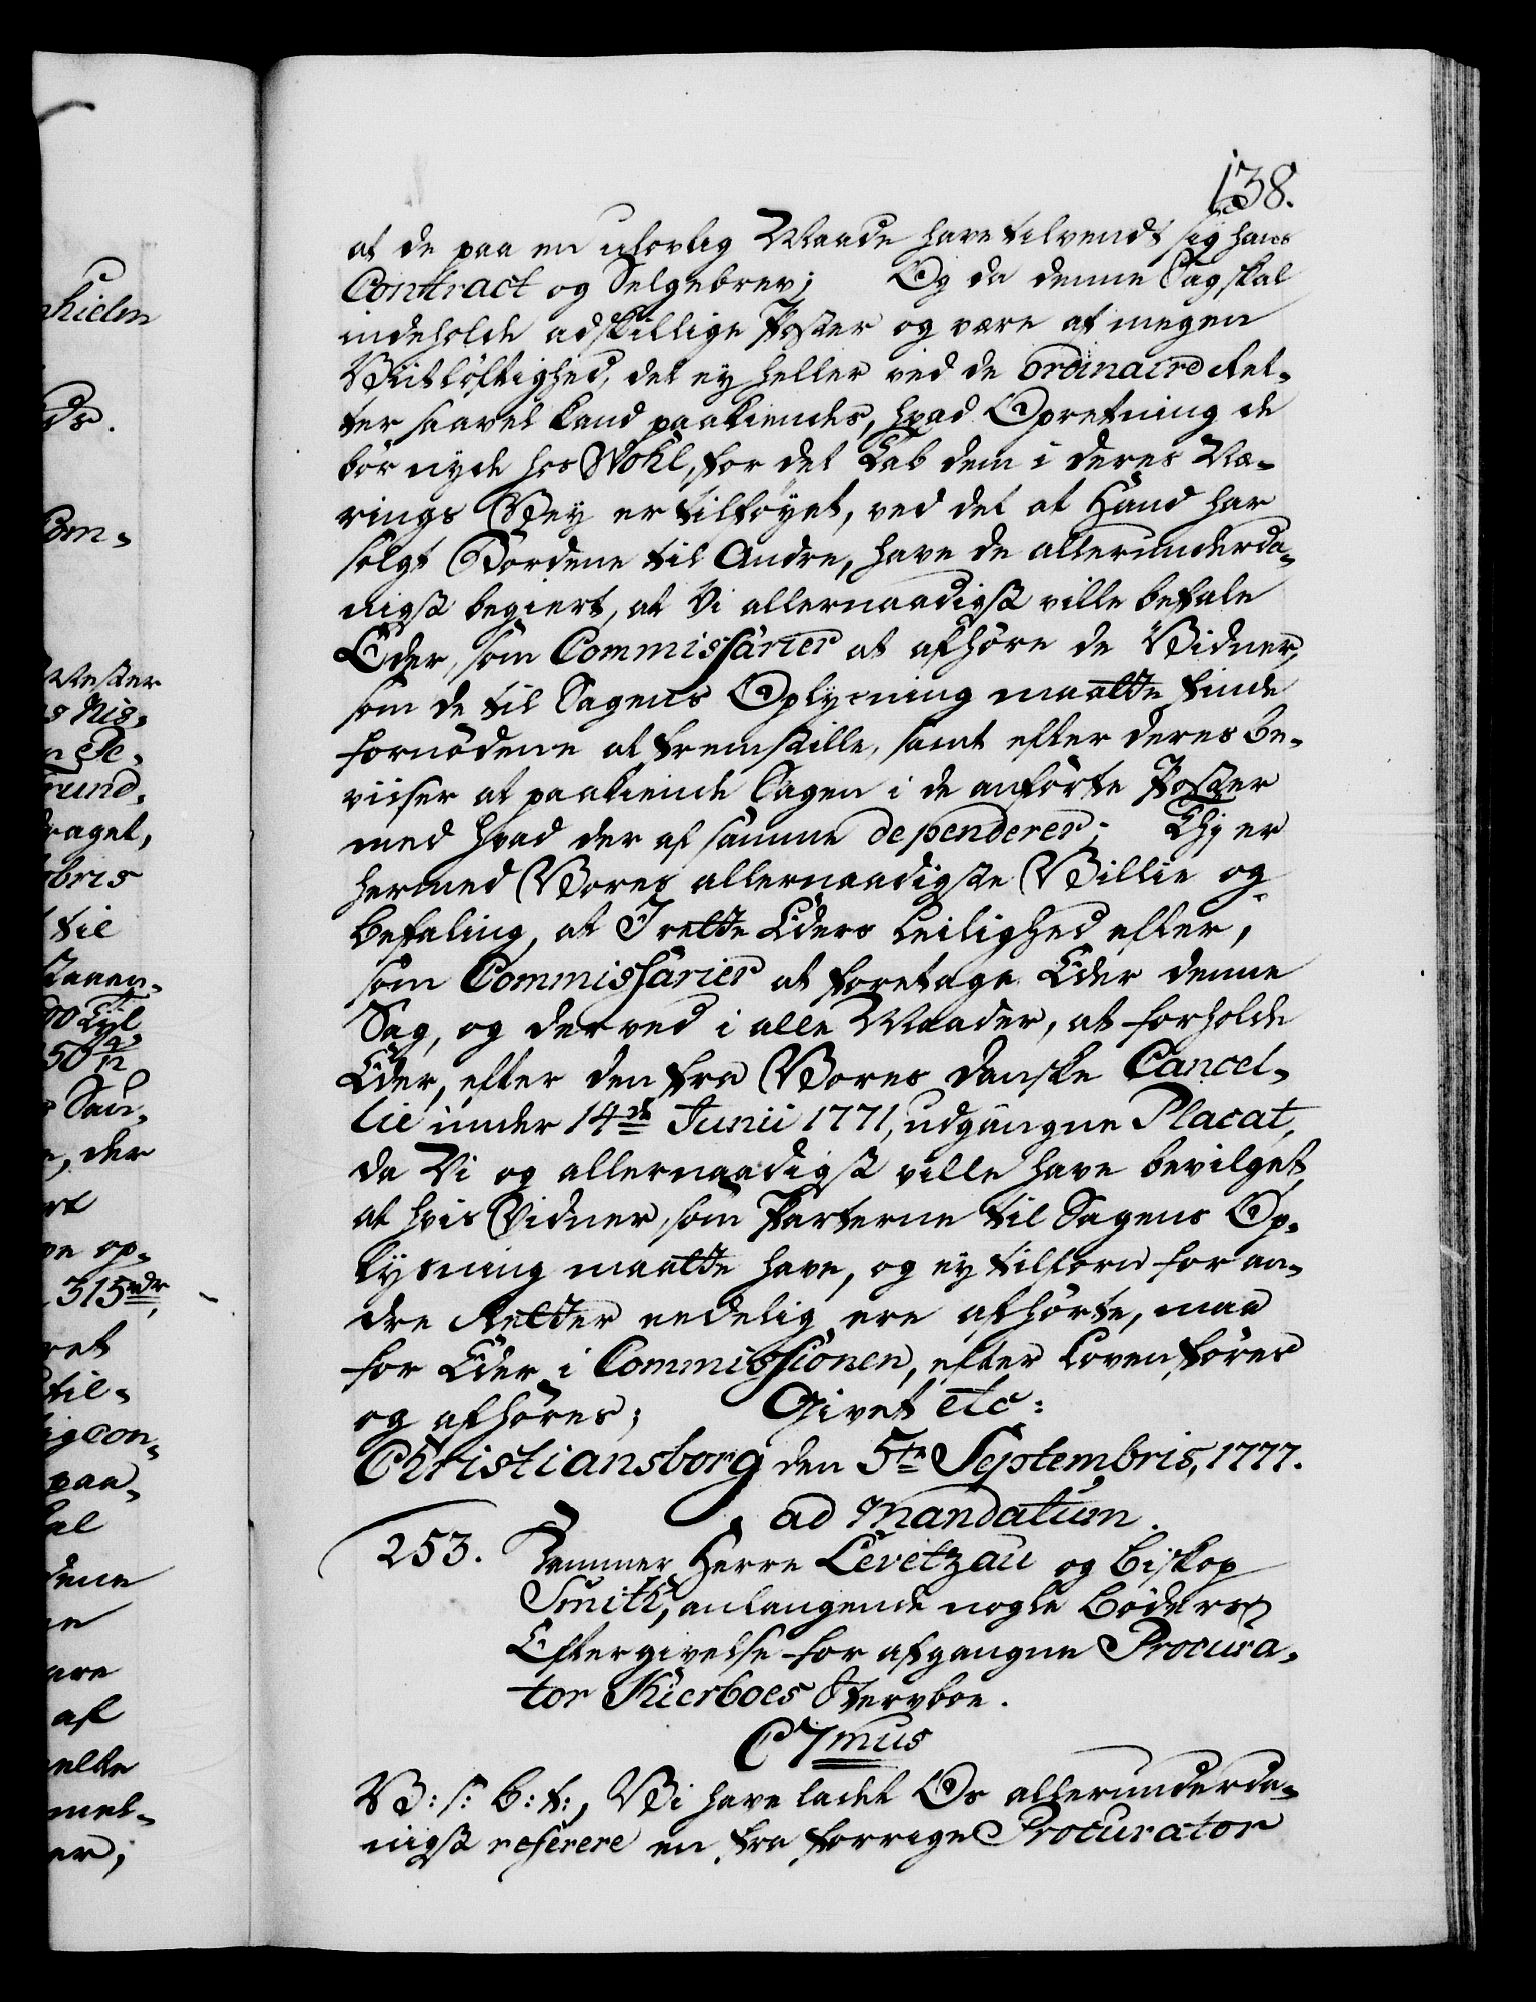 138.
at de paa en ulovlig Maade have tilvendt sig hans
Contract og Selgebrev; Og da denne Sag skal
indeholde adskillige Poster og være af megen
Vitløftighed, det ey heller ved de ordinaire Ret-
ter saavel kand paakiendes, hvad Opretning de
bør nyde hos Wohl, for det Tab dem i deres Næ-
rings Vey er tilføyet, ved det at Hand har
solgt Bordene til Andre, have de allerunderda-
nigst begiert, at Vi allernaadigst ville befale
Eder, som Commissarier at afhøre de Vidner,
som de til Sagens Oplysning maatte finde
fornødene at fremstille, samt efter deres be-
viiser at paakiende Sagen i de anførte Poster
med hvad der af samme dependerer; Thi er
hermed Vores allernaadigste Villie og
befaling, at I rette Eders Leilighed efter,
som Commissarier at foretage Eder denne
Sag, og derved i alle Maader, at forholde
Eder, efter den fra Vores danske Cancel-
lie under 14de Junii 1771, udgangne Placat,
da Vi og allernaadigst ville have bevilget,
at hvis Vidner, som Parterne til Sagens Op-
lysning maatte have, og ey tilforn for an-
dre Retter eedelig ere afhørte, maa
for Eder i Commissionen, efter Loven føres
og afhøres; Givet etc:
Christiansborg den 5te Septembris, 1777.
ad Mandatum.
253. Kammer Herre Levetzau og Biskop
Smith, anlangende nogle Bøders
Eftergivelse for afgangne Procura-
tor Kierboes Stervboe.
C7mus
V: s: b: t:, Vi have ladet Os allerunderda-
nigst referere en fra forrige Procurator